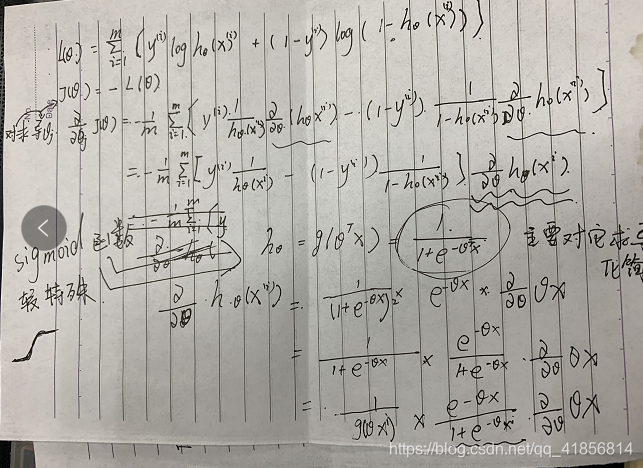 L(θ) = \sum_{i=1}^{m} ( y^{(i)} log h_θ(x^{(i)}) + (1-y^{(i)}) log (1-h_θ(x^{(i)})) )
J(θ) = -L(θ)
\frac{∂}{∂θ_j} J(θ) = -\frac{1}{m} \sum_{i=1}^{m} ( y^{(i)} \frac{1}{h_θ(x^{(i)})} \frac{∂}{∂θ} (h_θ x^{(i)}) - (1-y^{(i)}) \frac{1}{1-h_θ(x^{(i)})} \frac{∂}{∂θ} h_θ(x^{(i)}) ]
= -\frac{1}{m} \sum_{i=1}^{m} [ y^{(i)} \frac{1}{h_θ(x^{(i)})} - (1-y^{(i)}) \frac{1}{1-h_θ(x^{(i)})} ] \frac{∂}{∂θ} h_θ(x^{(i)})
sigmoid 函数 h_θ = g(θ^T x) = \frac{1}{1+e^{-θ^T x}} 主要对它求
较特殊 化简
\frac{∂}{∂θ} h_θ(x^{(i)}) = \frac{1}{(1+e^{-θx})^2} × e^{-θx} × \frac{∂}{∂θ} θx
= \frac{1}{1+e^{-θx}} × \frac{e^{-θx}}{1+e^{-θx}} \cdot \frac{∂}{∂θ} θx
= \frac{1}{g(θx^i)} × \frac{e^{-θx}}{1+e^{-θx}} \cdot \frac{∂}{∂θ} θx
https://blog.csdn.net/qq_41856814